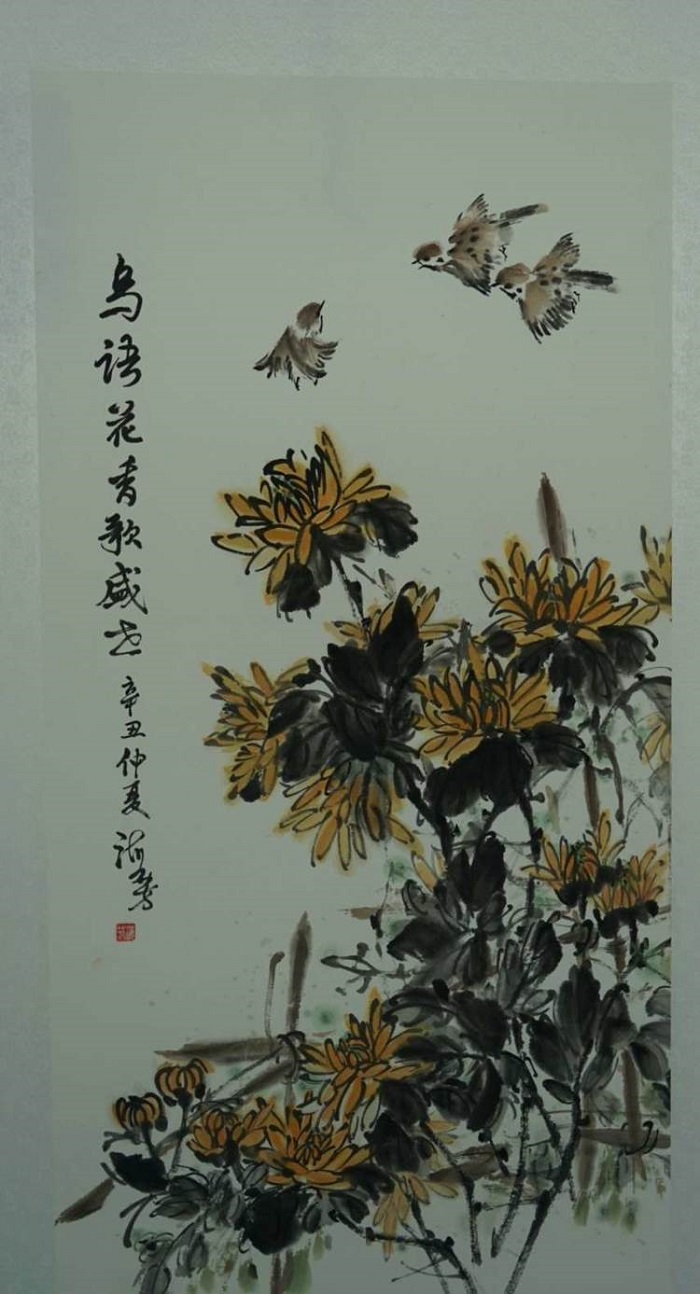 鸟语花香歌盛世 辛丑仲夏